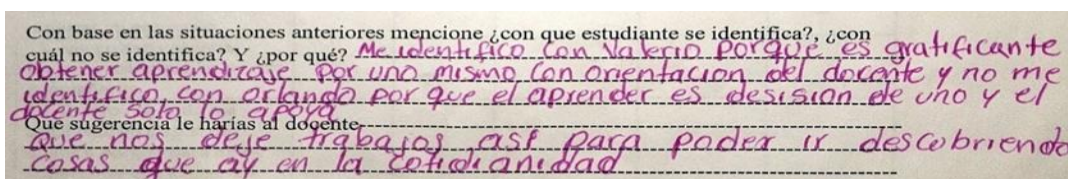 Con base en las situaciones anteriores mencione ¿con que estudiante se identifica?, ¿con
cuál no se identifica? Y ¿por qué? Me identifico con Valerio porque es gratificante
obtener aprendizaje por uno mismo con orientación del docente y no me
identifico con orlando por que el aprender es desisión de uno y el
docente solo lo apoya
Que sugerencia le harías al docente
Que nos deje trabajos así para poder ir descubriendo
cosas que ay en la cotidianidad